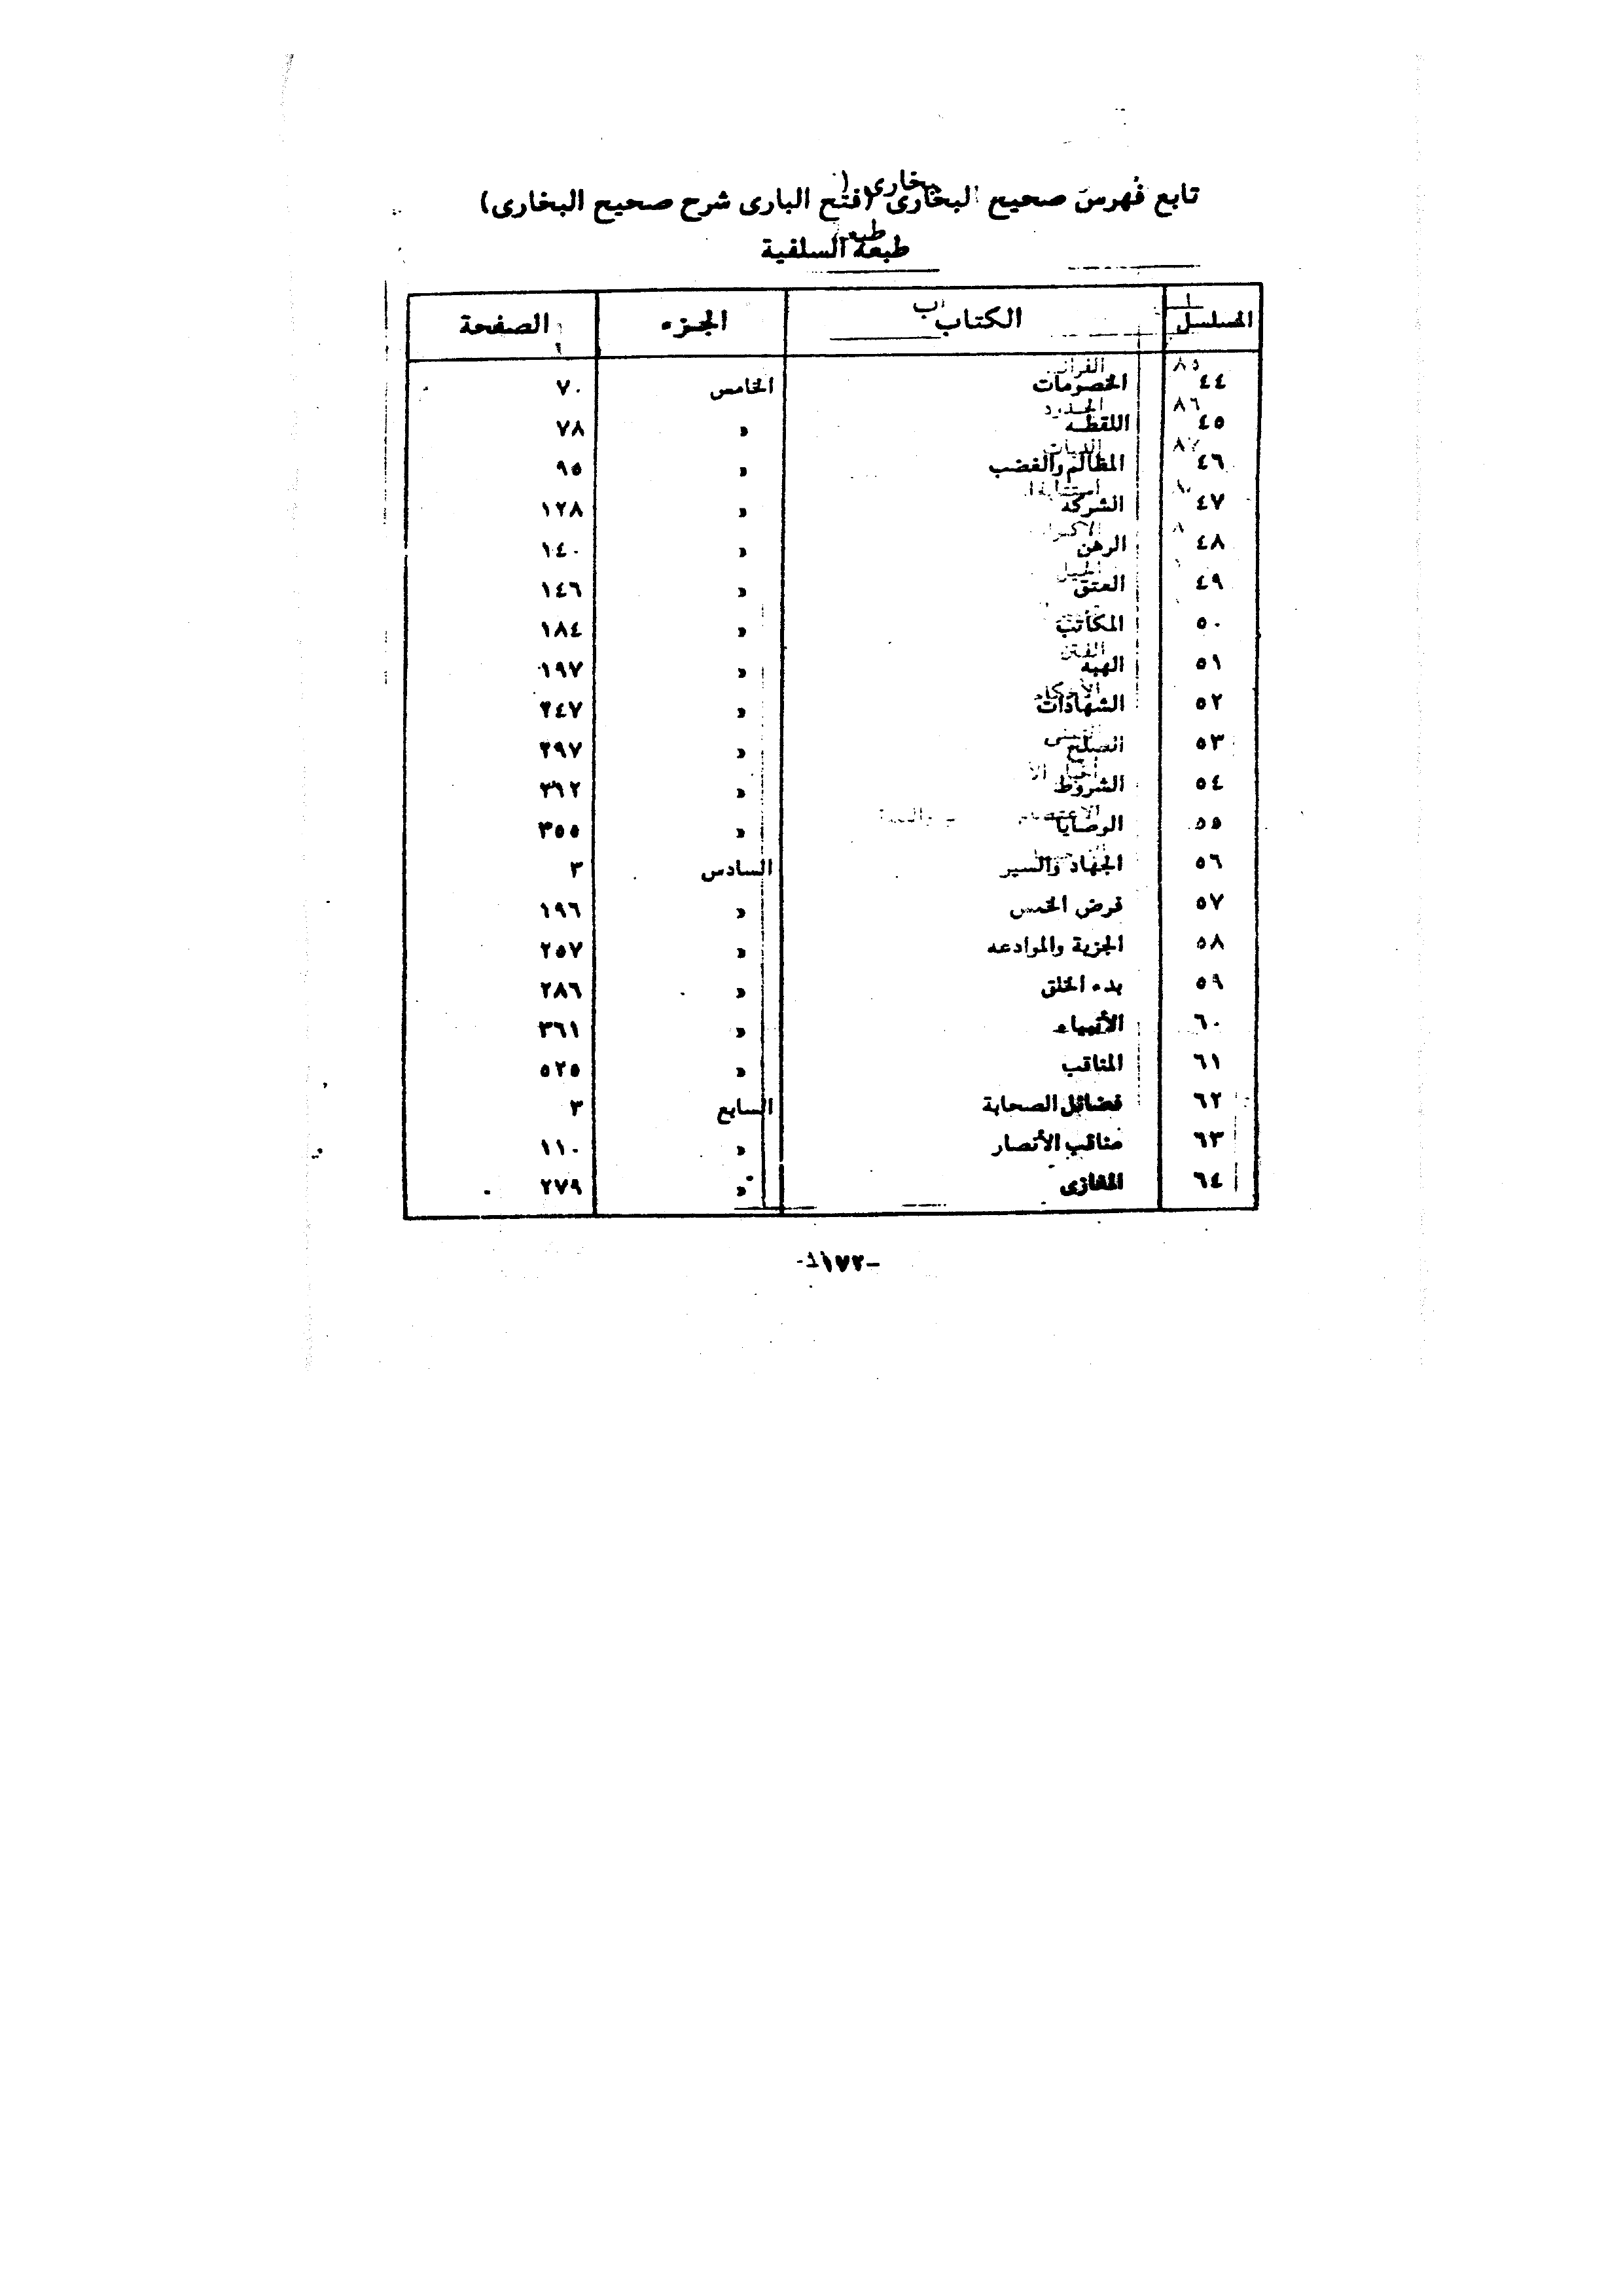 تابع فهرس صحيح البخارى (فتح البارى شرح صحيح البخارى)
طبعة السلفية
المسلسل الكتاب الجزء الصفحة
٤٤ الخصومات الخامس ٧٠
٤٥ اللقطه » ٧٨
٤٦ المظالم والغضب » ٩٥
٤٧ الشركة » ١٢٨
٤٨ الرهن » ١٤٠
٤٩ العتق » ١٤٦
٥٠ المكاتب » ١٨٤
٥١ الهبه » ١٩٧
٥٢ الشهادات » ٢٤٧
٥٣ الصلح » ٢٩٧
٥٤ الشروط » ٣١٢
٥٥ الوصايا » ٣٥٥
٥٦ الجهاد والسير السادس ٣
٥٧ فرض الخمس » ١٩٦
٥٨ الجزية والموادعه » ٢٥٧
٥٩ بدء الخلق » ٢٨٦
٦٠ الأنبياء » ٣٦١
٦١ المناقب » ٥٢٥
٦٢ فضائل الصحابة السابع ٣
٦٣ مناقب الأنصار » ١١٠
٦٤ المغازى » ٢٧٩